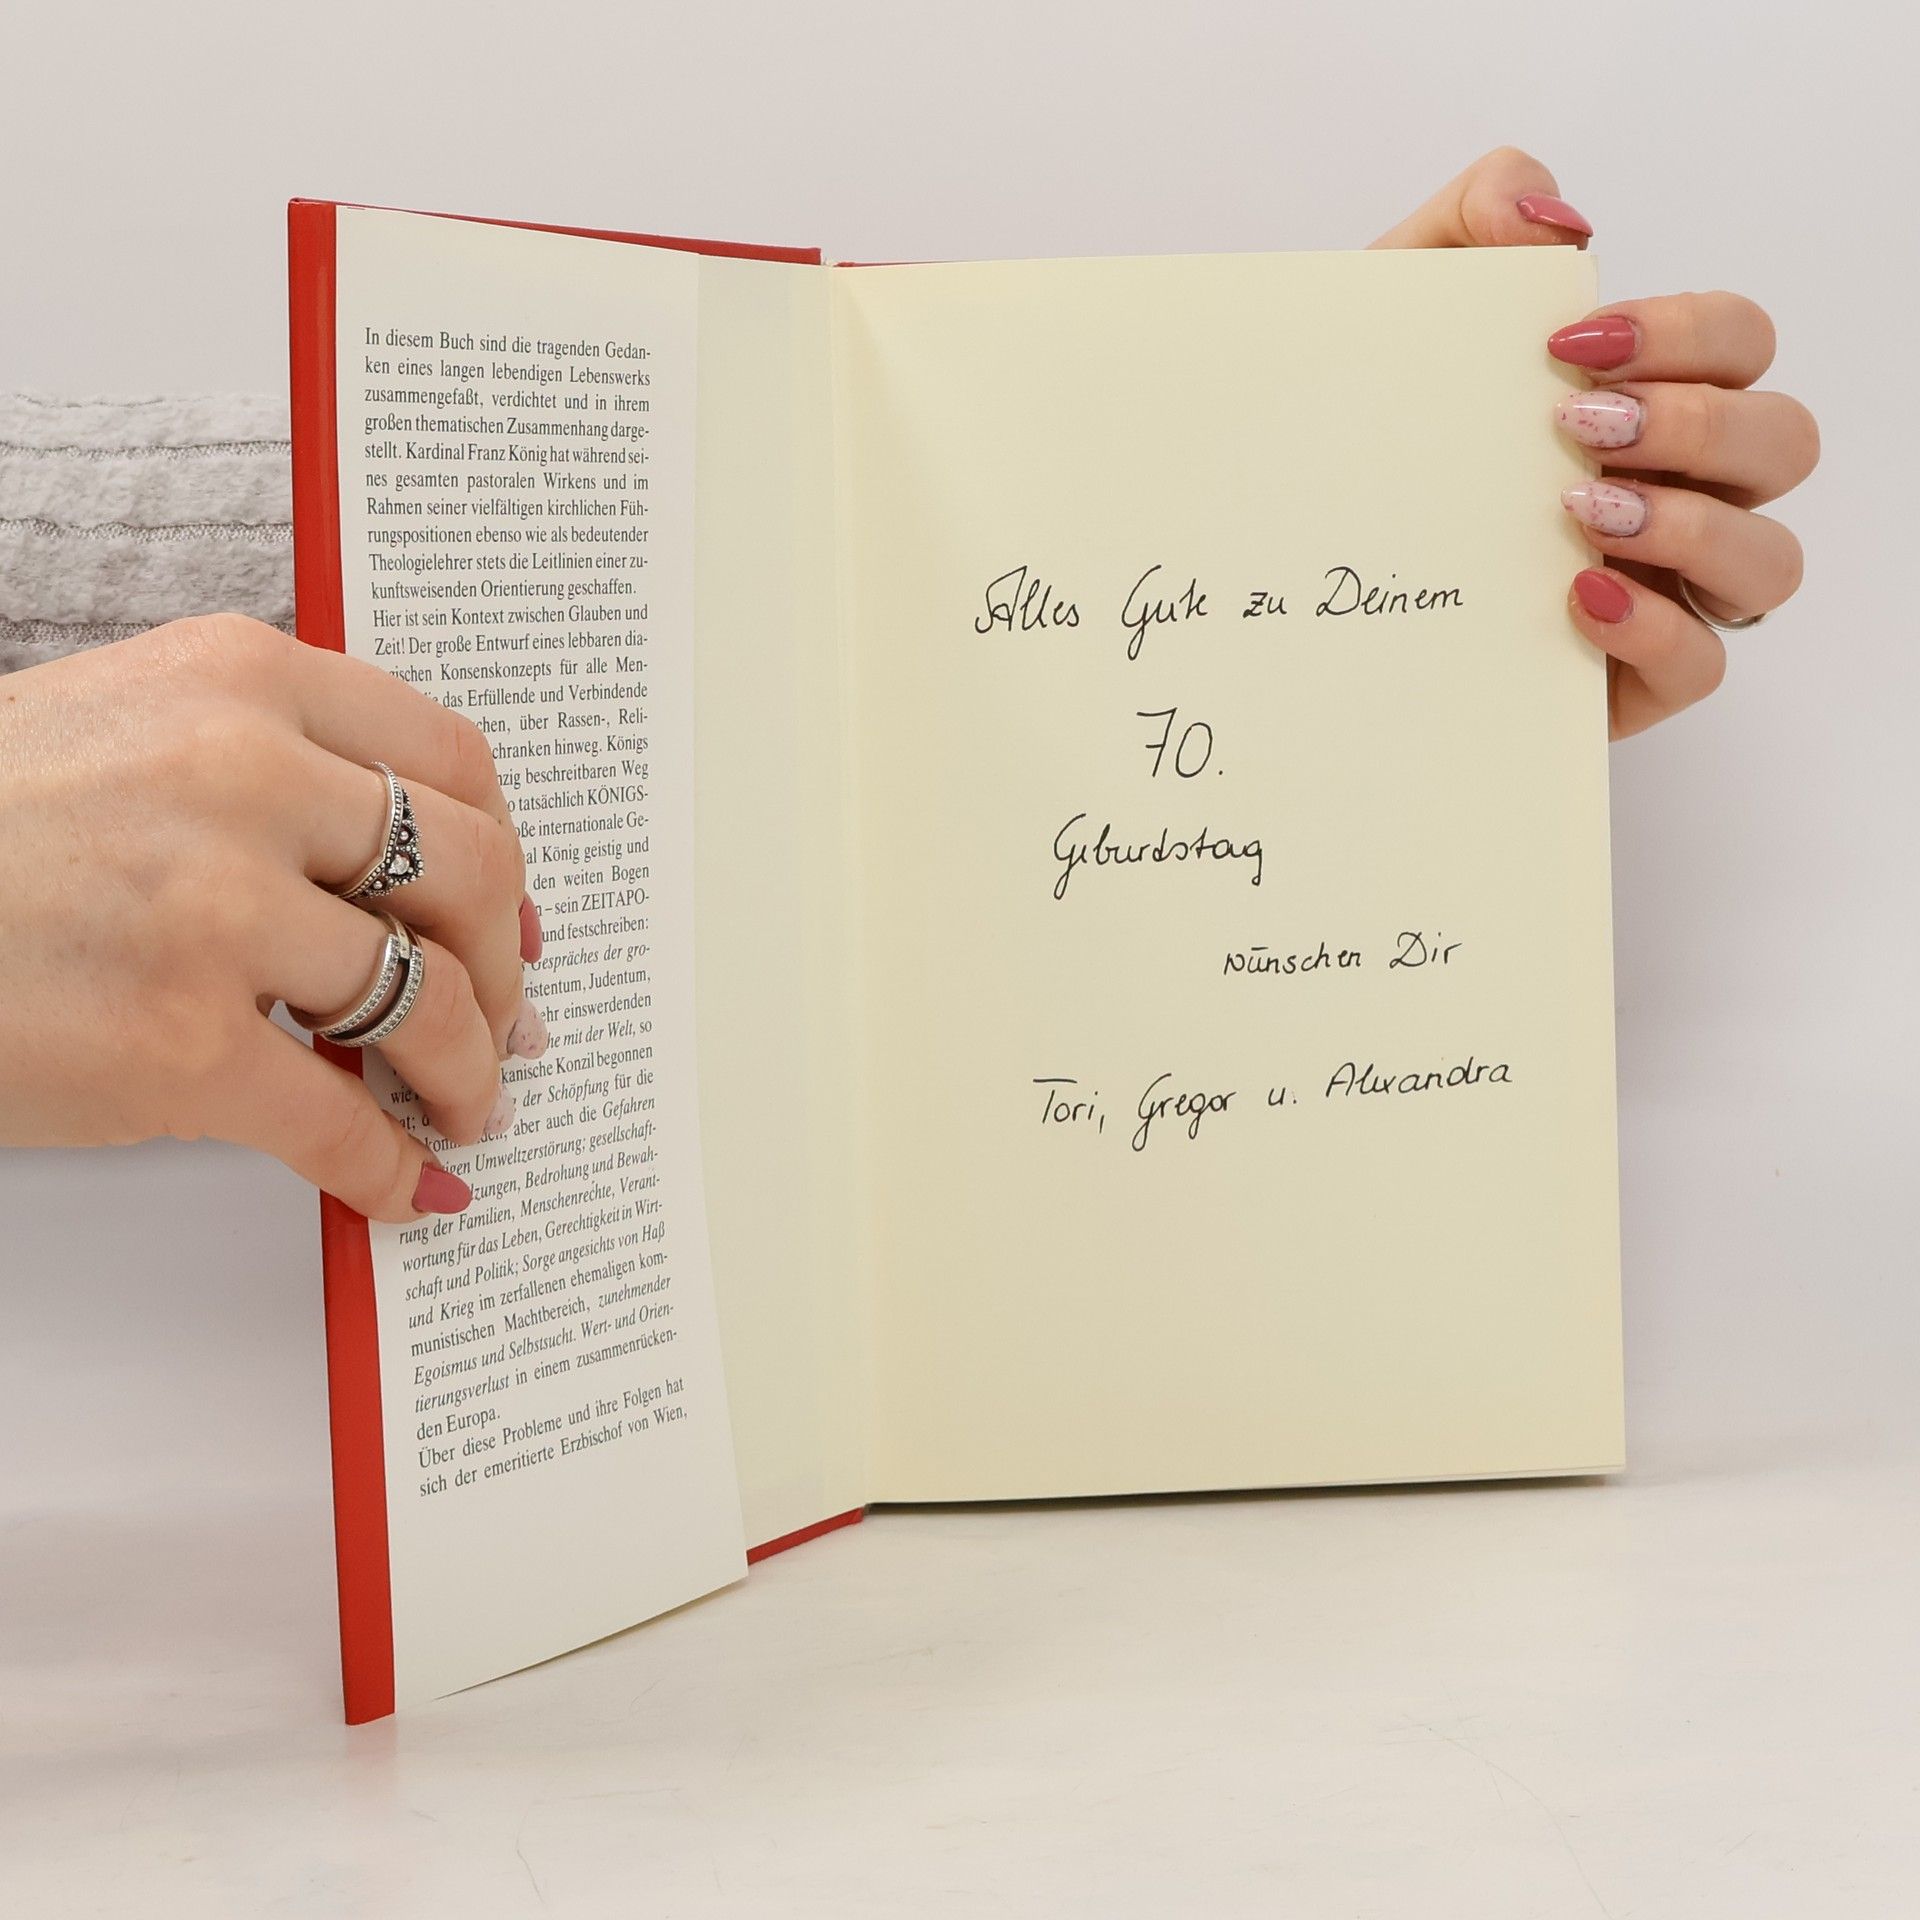 In diesem Buch sind die tragenden Gedan-
ken eines langen lebendigen Lebenswerks
zusammengefaßt, verdichtet und in ihrem
großen thematischen Zusammenhang darge-
stellt. Kardinal Franz König hat während sei-
nes gesamten pastoralen Wirkens und im
Rahmen seiner vielfältigen kirchlichen Füh-
rungspositionen ebenso wie als bedeutender
Theologielehrer stets die Leitlinien einer zu-
kunftsweisenden Orientierung geschaffen.
Hier ist sein Kontext zwischen Glauben und
Zeit! Der große Entwurf eines lebbaren dia-
Konsenskonzepts für alle Men-
das Erfüllende und Verbindende
über Rassen-, Reli-
hinweg. Königs
beschreitbaren Weg
tatsächlich KÖNIGS-
internationale Ge-
König geistig und
den weiten Bogen
– sein ZEITAPO-
und festschreiben:
Gespräches der gro-
Judentum,
einswerdenden
mit der Welt, so
Konzil begonnen
der Schöpfung für die
aber auch die Gefahren
Umweltzerstörung; gesellschaft-
Bedrohung und Bewah-
rung der Familien, Menschenrechte, Verant-
wortung für das Leben, Gerechtigkeit in Wirt-
schaft und Politik; Sorge angesichts von Haß
und Krieg im zerfallenen ehemaligen kom-
munistischen Machtbereich, zunehmender
Egoismus und Selbstsucht. Wert- und Orien-
tierungsverlust in einem zusammenrücken-
den Europa.
Über diese Probleme und ihre Folgen hat
sich der emeritierte Erzbischof von Wien,
Alles Gute zu Deinem
70.
Geburtstag
wünschen Dir
Tori, Gregor u. Alexandra